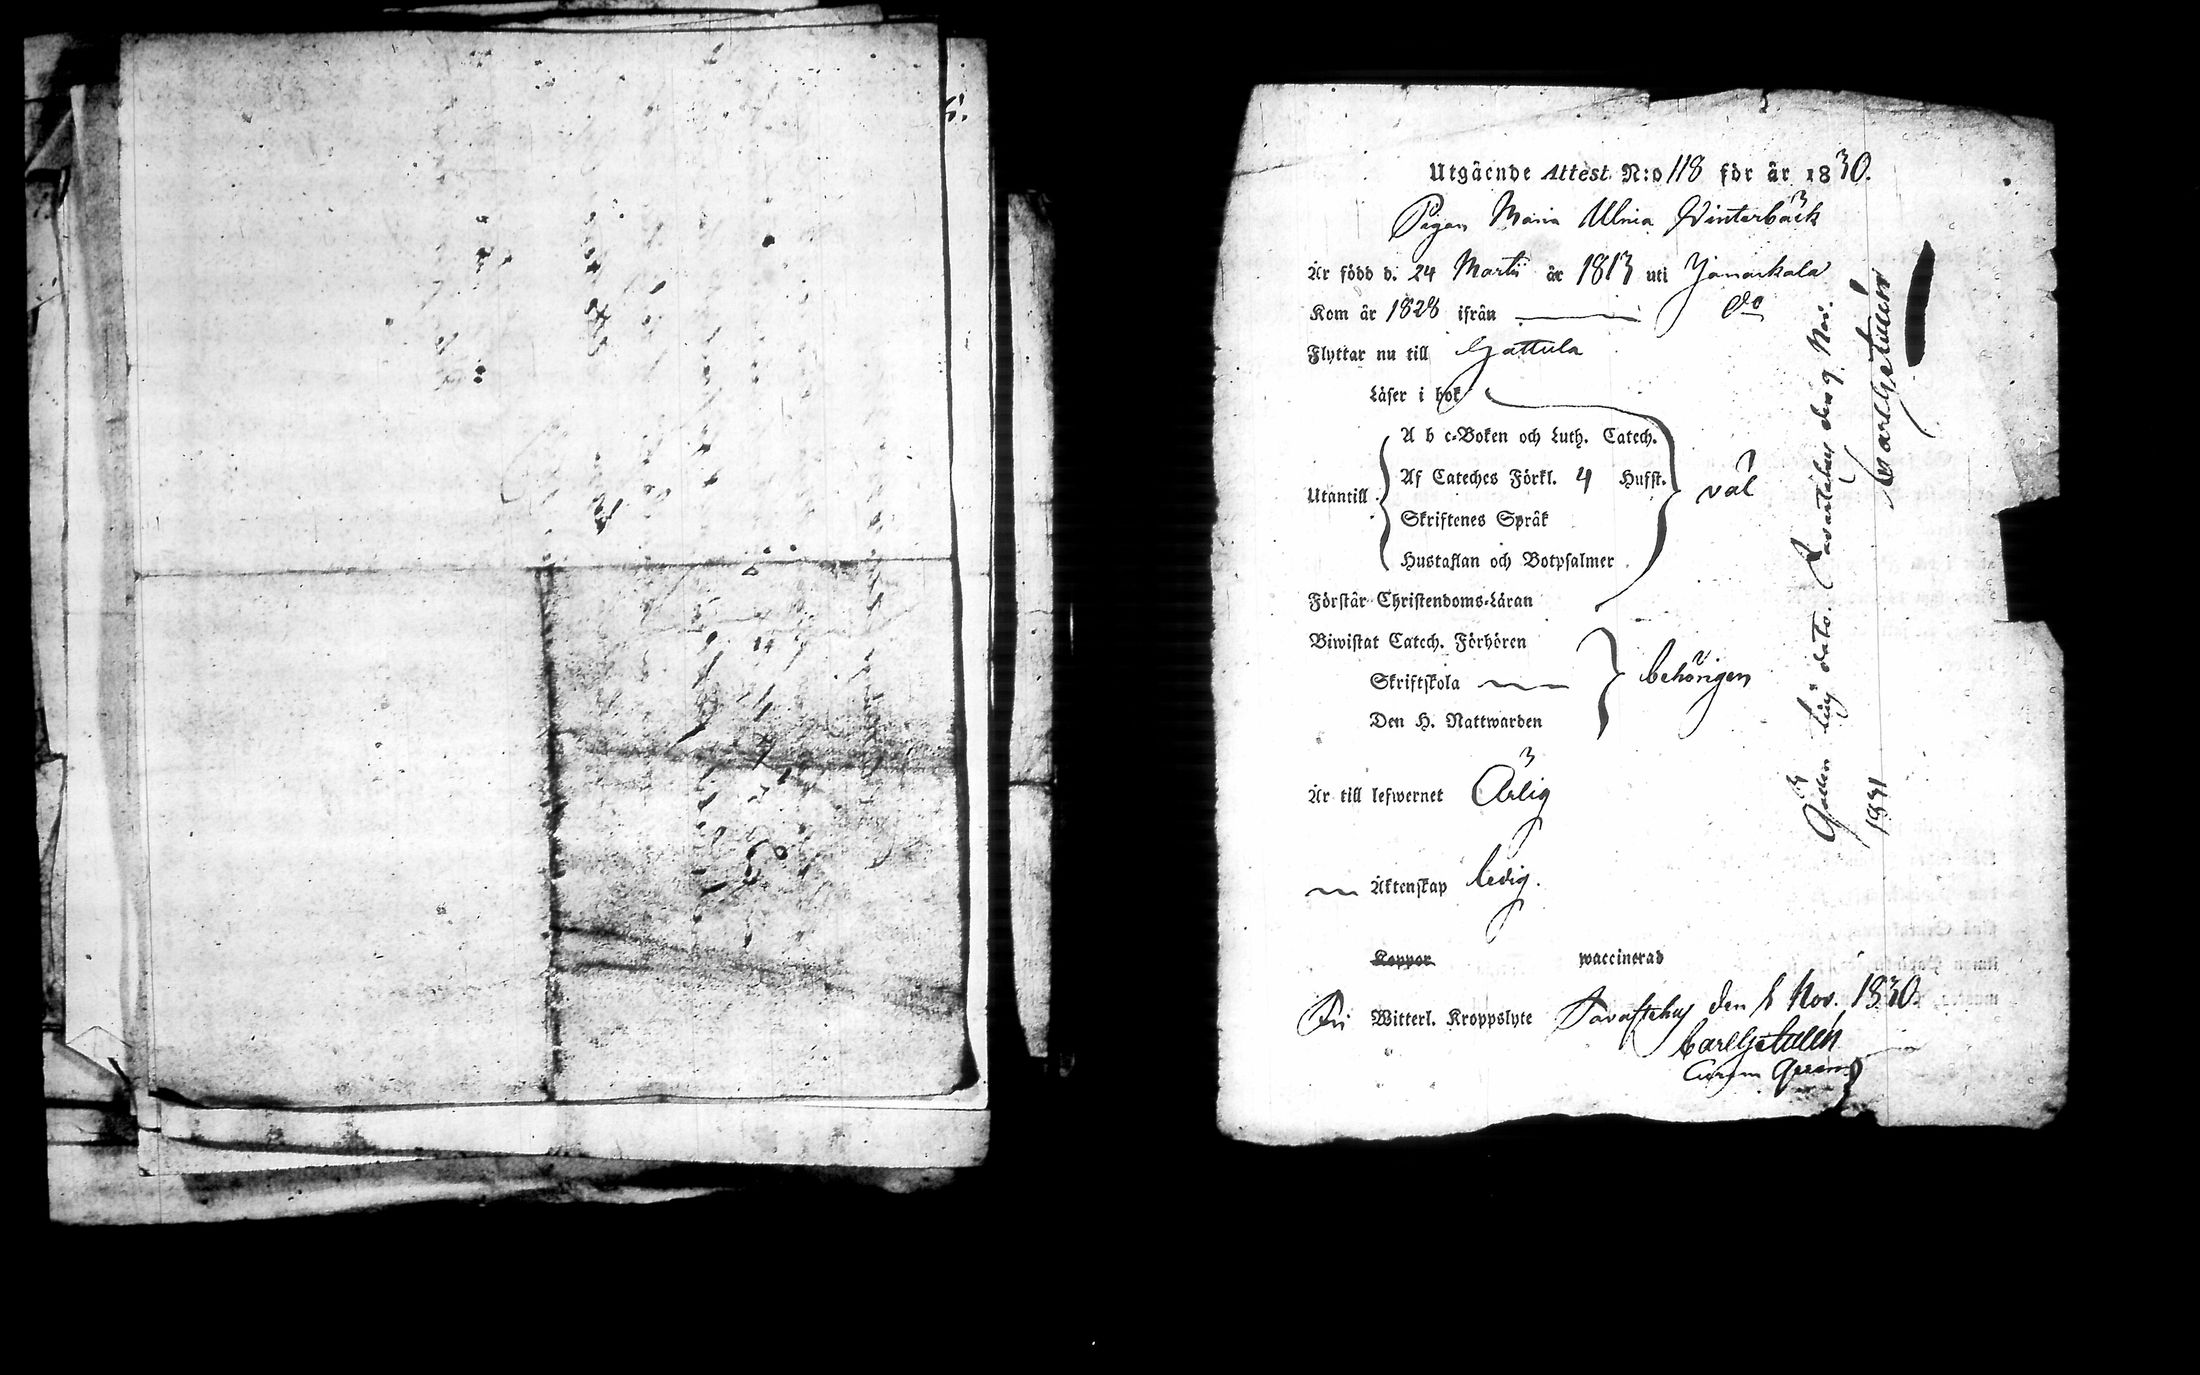 5.
Utgående Attest N:o 118 för år 1830.
Pigan Maria Ulrica Winterbäck
Är född d. 24 Martii år 1813 uti Janackala
Kom år 1828 ifrån do
Flyttar nu till Hattula
Läser i bok
A b c-Boken och Luth. Catech.
Utantill Af Cateches Förkl. 4 Hufst. väl
Skriftenes Språk
Hustaflan och Botpsalmer
Förstår Christendoms-Läran
Biwistat Catech. Förhören
Skriftskola behörigen
Den H. Nattwarden
Är till lefwernet Ärlig
Äktenskap ledig.
Koppor waccinerad
Fri Witterl. Kroppslyte Tavastehus den 8 Nov. 1830.
Carl Getulén
Curam gerens
Gäller dato. Tavastehus den 9 Nov.
1831 Carl Getulén